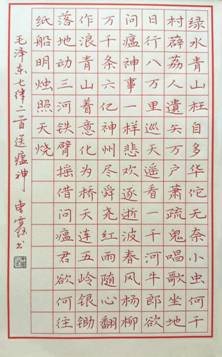 绿水青山枉自多华佗无奈小虫何千
村薜荔人遗矢万户萧疏鬼唱歌坐地
日行八万里巡天遥看一千河牛郎欲
问瘟神事一样悲欢逐逝波春风杨柳
万千条六亿神州尽舜尧红雨随心翻
作浪青山着意化为桥天连五岭银锄
落地动三河铁臂摇借问瘟君欲何往
纸船明烛照天烧
毛泽东七律二首送瘟神 书